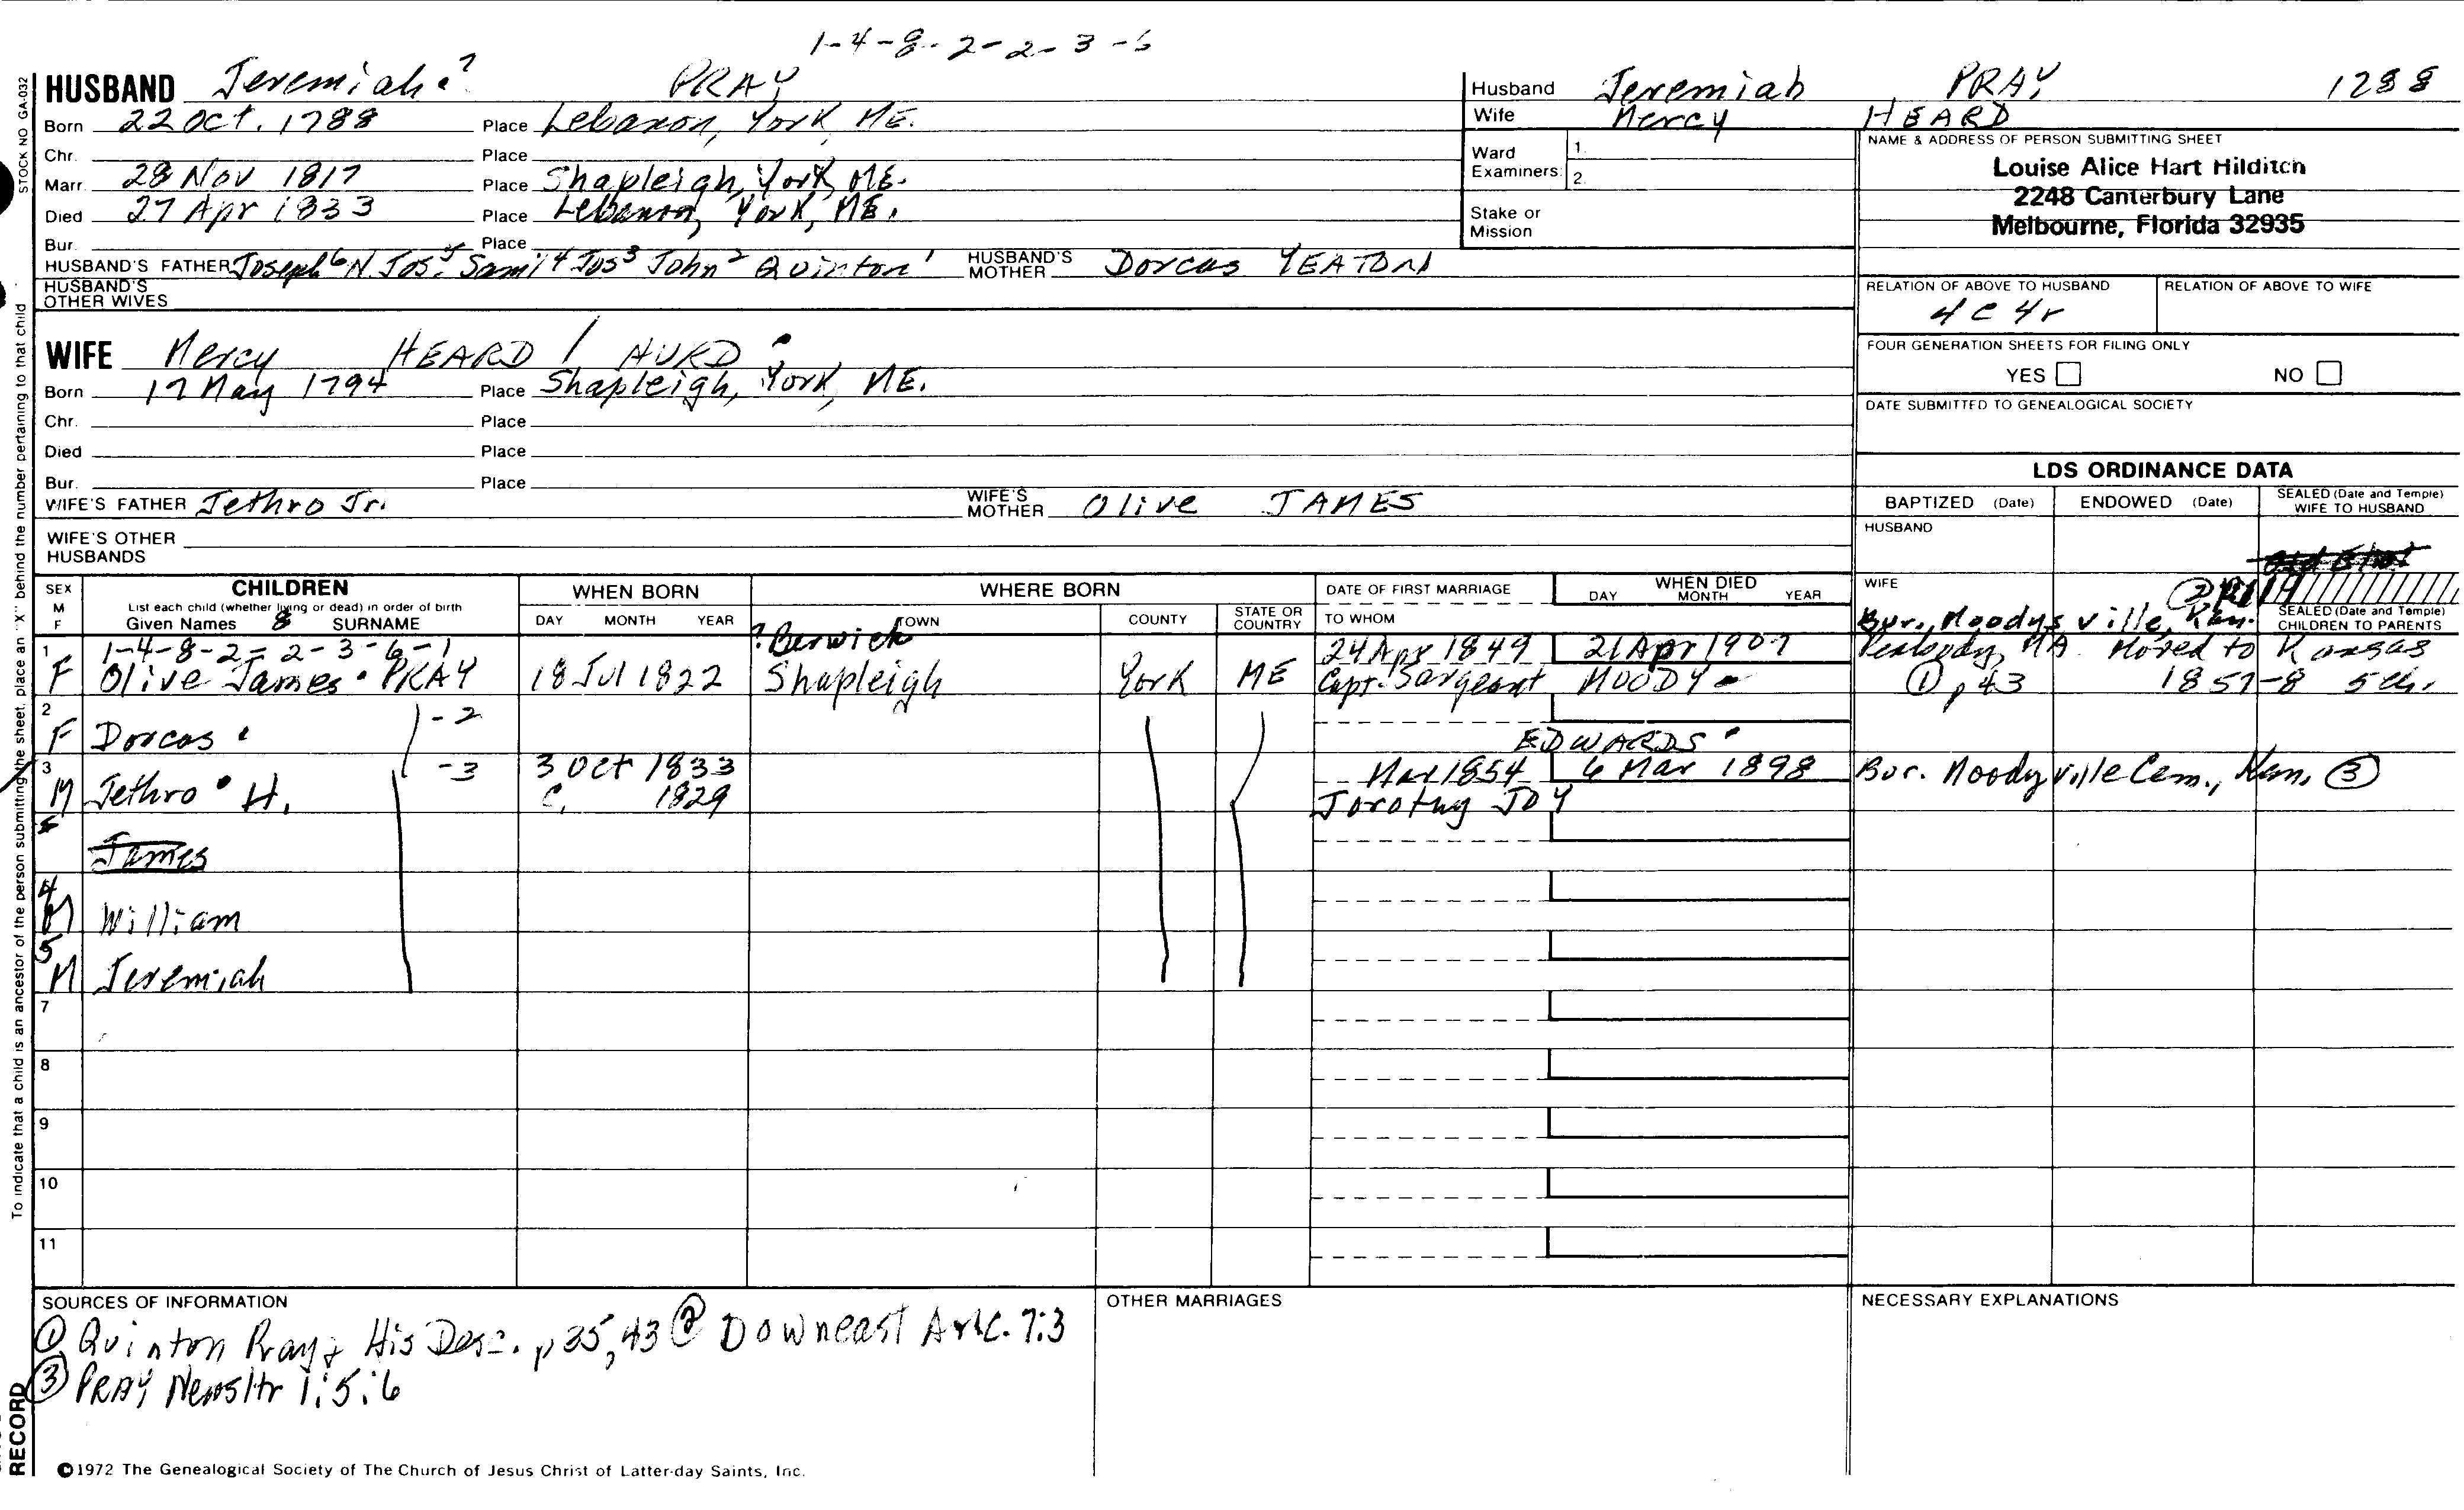 1-4-8-2-2-3-6
HUSBAND Jeremiah ⁷ PRAY
Born 22 Oct. 1788 Place Lebanon, York, ME.
Chr. Place
Marr. 28 Nov 1817 Place Shapleigh, York, ME.
Died 27 Apr 1833 Place Lebanon, York, ME.
Bur. Place
HUSBAND'S FATHER Joseph⁶ N. Jos.⁵ Saml⁴ Jos³ John² Quinton¹ HUSBAND'S MOTHER Dorcas YEATON
HUSBAND'S OTHER WIVES
WIFE Mercy HEARD / HURD
Born 17 May 1794 Place Shapleigh, York, ME.
Chr. Place
Died Place
Bur. Place
WIFE'S FATHER Jethro Jr. WIFE'S MOTHER Olive JAMES
WIFE'S OTHER HUSBANDS
Husband Jeremiah PRAY 1788
Wife Mercy HEARD
Ward Examiners: 1.
2.
Stake or Mission
NAME & ADDRESS OF PERSON SUBMITTING SHEET
Louise Alice Hart Hilditch
2248 Canterbury Lane
Melbourne, Florida 32935
RELATION OF ABOVE TO HUSBAND RELATION OF ABOVE TO WIFE
4 C 4r
FOUR GENERATION SHEETS FOR FILING ONLY
YES NO
DATE SUBMITTED TO GENEALOGICAL SOCIETY
LDS ORDINANCE DATA
BAPTIZED (Date) ENDOWED (Date) SEALED (Date and Temple) WIFE TO HUSBAND
HUSBAND
WIFE
SEALED (Date and Temple) CHILDREN TO PARENTS
SEX M F CHILDREN WHEN BORN WHERE BORN DATE OF FIRST MARRIAGE WHEN DIED
List each child (whether living or dead) in order of birth DAY MONTH YEAR
Given Names 8 SURNAME DAY MONTH YEAR TOWN COUNTY STATE OR COUNTRY TO WHOM
1 1-4-8-2-2-3-6-1 ? Berwick 24 Apr 1849 21 Apr 1907 Bur., Moodysville, Kan.
F Olive James PRAY 18 Jul 1822 Shapleigh York ME Capt. Sargeant MOODY Peabody, MA. Moved to Kansas
① p 43 1857-8 5 ch.
2 -2
F Dorcas EDWARDS
3 -3 3 Oct 1833 Mar 1854 6 Mar 1898 Bur. Moodyville Cem., Kan. ③
M Jethro H. C. 1829 Dorothy JOY
James
4
M William
5
M Jeremiah
7
8
9
10
11
SOURCES OF INFORMATION OTHER MARRIAGES NECESSARY EXPLANATIONS
① Quinton Pray & His Desc. p 35, 43 ② Downeast Anc. 7:3
③ PRAY Newsltr 1:5:6
©1972 The Genealogical Society of The Church of Jesus Christ of Latter-day Saints, Inc.
STOCK NO GA-032
To indicate that a child is an ancestor of the person submitting the sheet, place an "X" behind the number pertaining to that child
RECORD